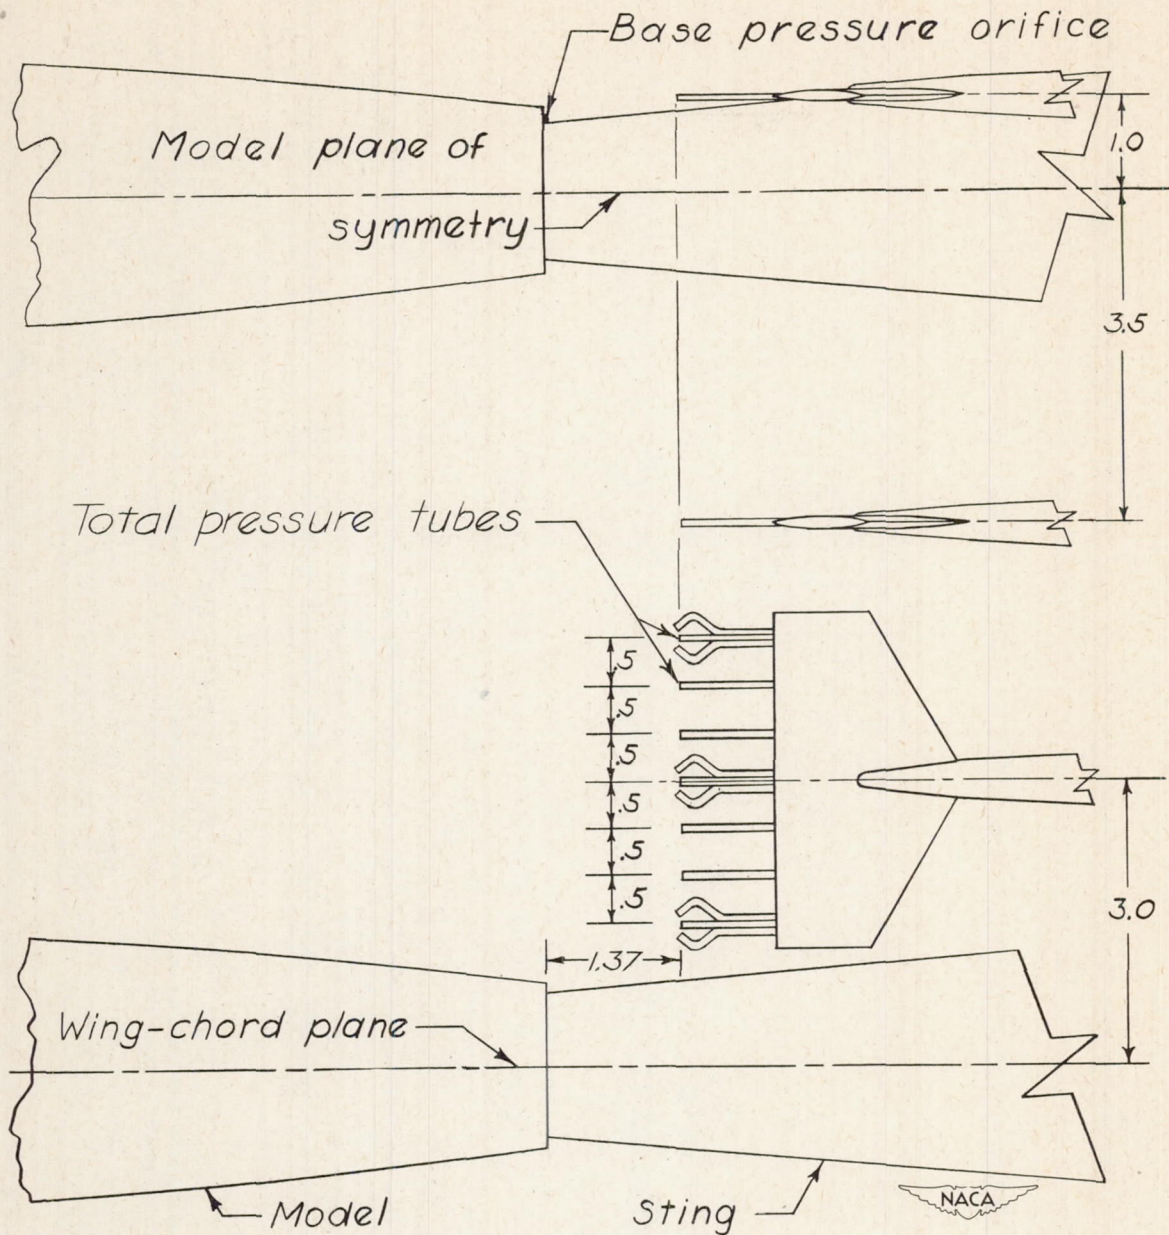 Base pressure orifice
Model plane of
symmetry
1.0
3.5
Total pressure tubes
.5
.5
.5
.5
.5
.5
3.0
1.37
Wing-chord plane
Model
Sting
NACA